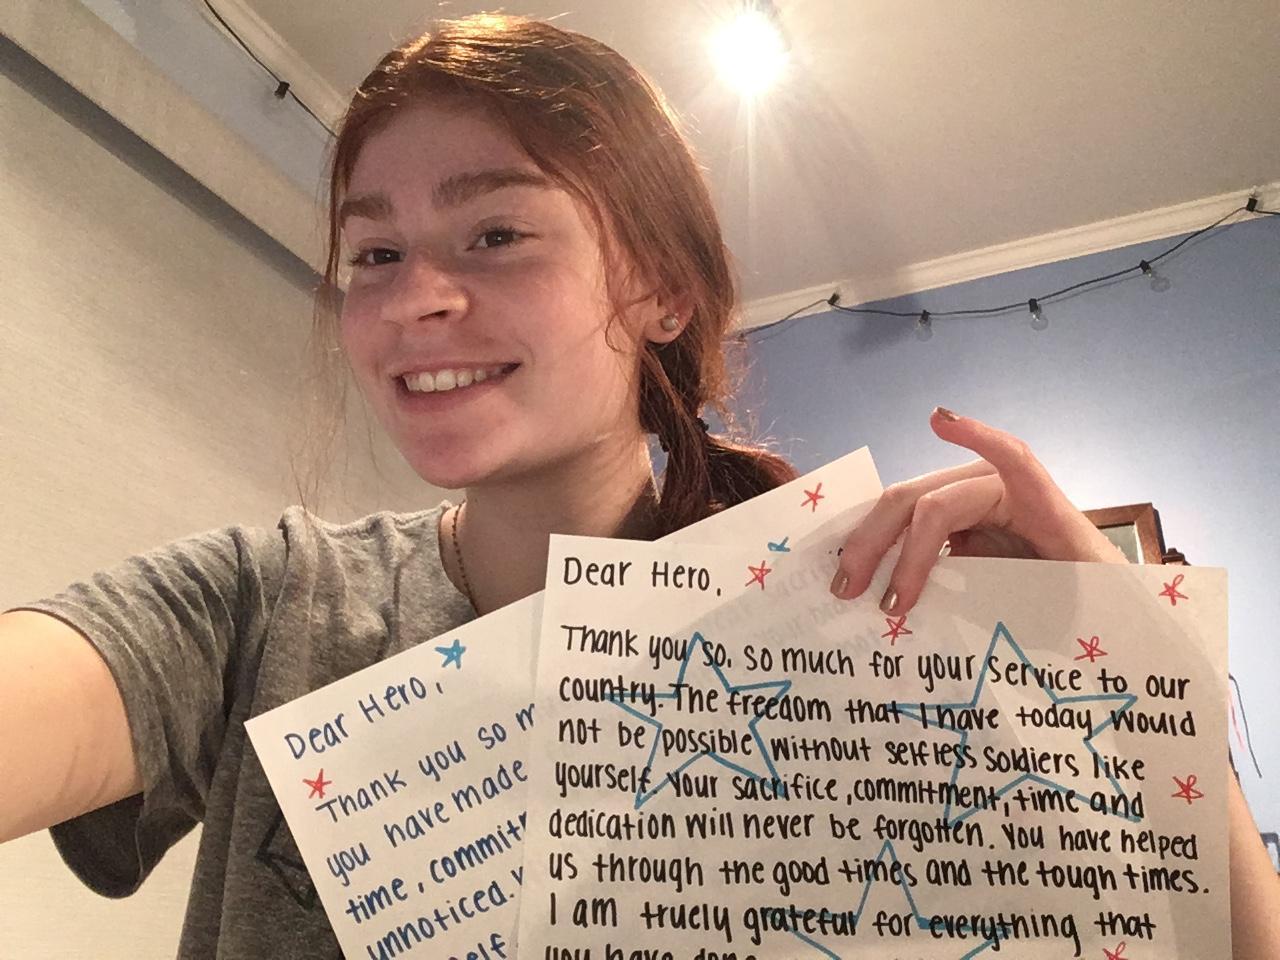 Dear Hero,
Thank you so m
you have made
time, commit
unnoticed.
self
Dear Hero,
Thank you so, so much for your service to our
country. The freedom that I have today would
not be possible without selfless soldiers like
yourself. Your sacrifice, commitment, time and
dedication will never be forgotten. You have helped
us through the good times and the tough times.
I am truely grateful for everything that
you have done